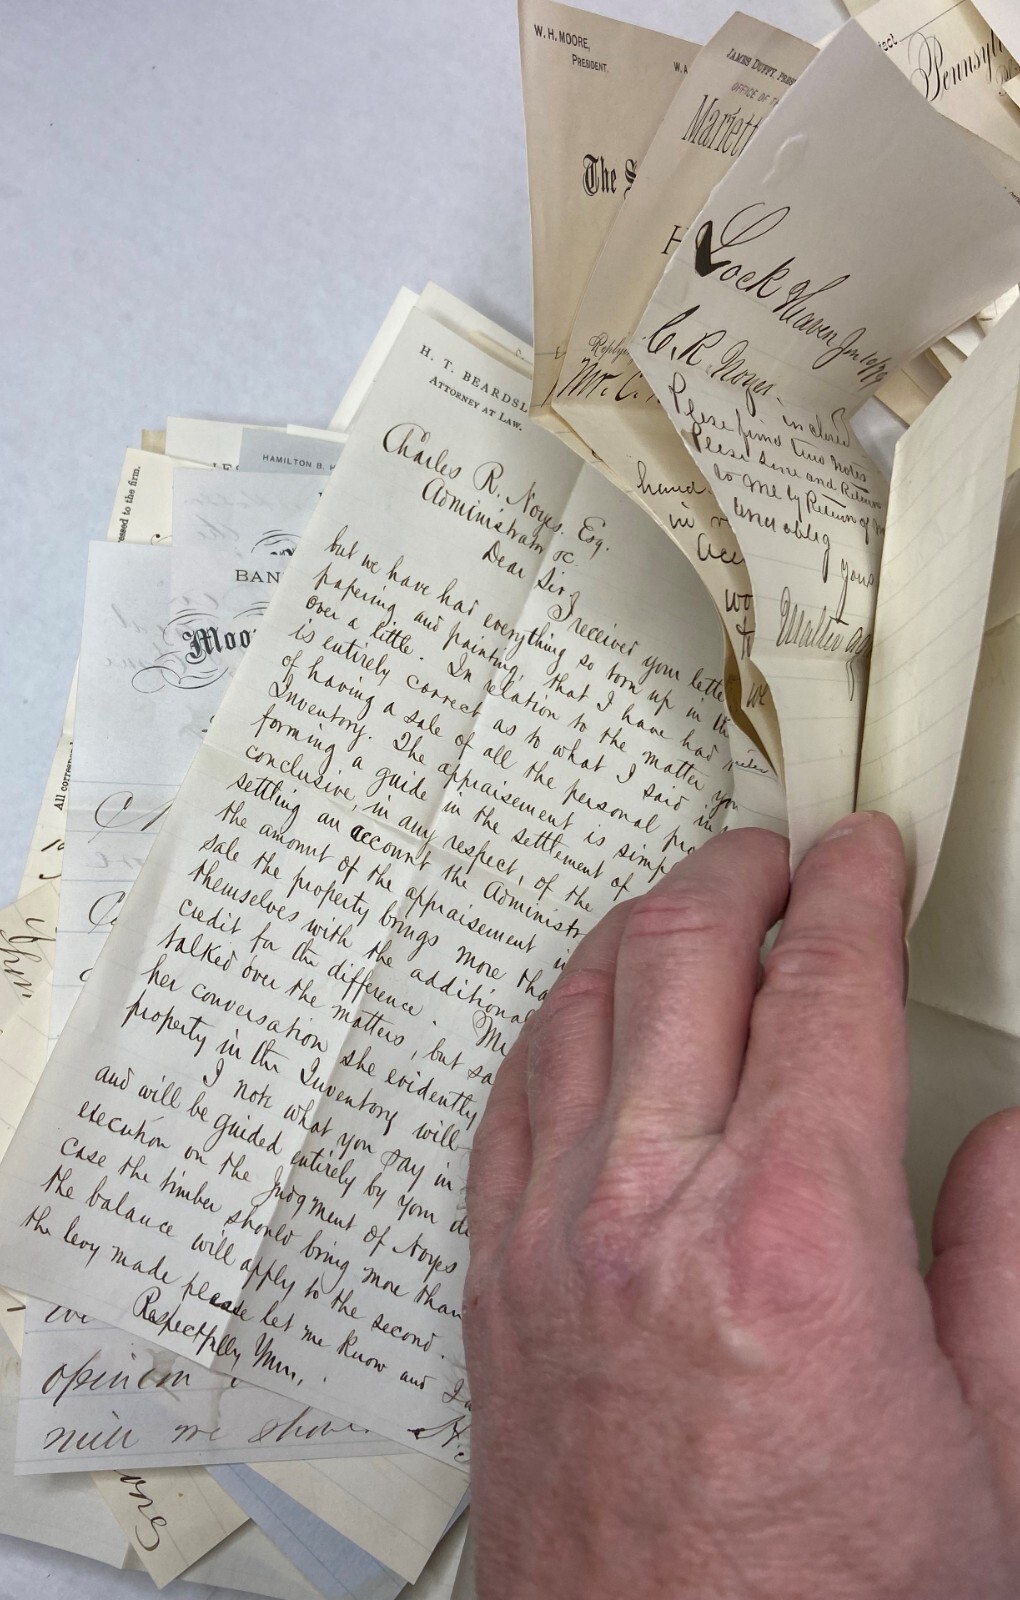 W. H. MOORE,
PRESIDENT.
W. A
The S
JAMES DUFFY, PRES
OFFICE OF T
Mariett
H
Reply
Mr. C.
hand
in
we
Pennsyl
Lock Haven Jan
C. R. Noyes. inclosed
Please find two Notes
Please sine and Return
to me by Return of
and oblig yours
H. T. BEARDSL
ATTORNEY AT LAW.
Charles R. Noyes. Esq.
Administrator &c.
Dear Sir;
I received your lette
but we have had everything so torn up in the
papering and painting, that I have had
over a little. In relation to the matter, you
is entirely correct as to what I said in
of having a sale of all the personal pro
Inventory. The appraisement is simp
forming a guide in the settlement of
conclusive, in any respect, of the
settling an account the Administr
the amount of the appraisement i
sale the property brings more tha
themselves with the additional
credit for the difference. Mr
talked over the matters, but sa
her conversation she evidently
property in the Inventory will
I note what you say in
and will be guided entirely by your de
execution on the Judgment of Noyes
case the timber should bring more than
the balance will apply to the second.
the levy made please let me know and I
Respectfully Yours,
H.
HAMILTON B. H
BAN
Moo
essed to the firm.
All corres
opinion